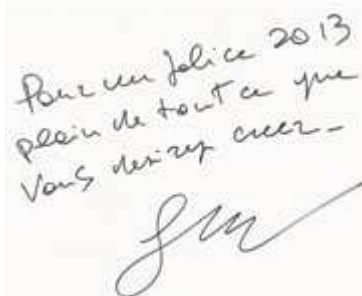 Pour un félice 2013
plein de tout ce que
vous desirez créer_